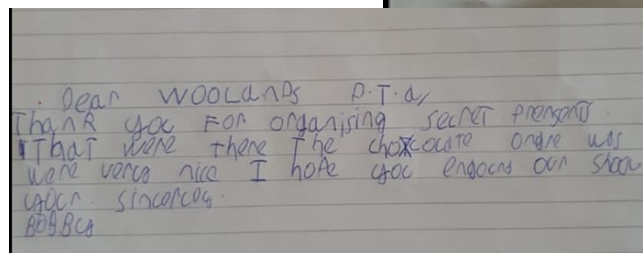 . Dear WOOLanDs P.T.a,
Thank yoc For organising secret prensents.
That were there The chocolate ongre was
were very nice I hope yoc endocns our show
yocr sincorcos.
BOBBy